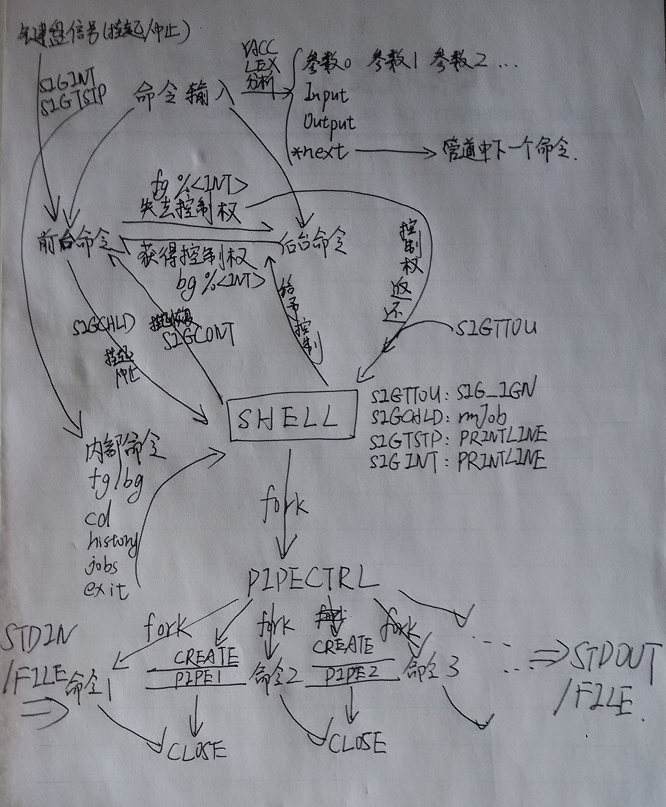 键盘信号(挂起/中止)
SIGINT
SIGTSTP
命令输入
YACC
LEX
分析
参数0 参数1 参数2 ...
Input
Output
*next
管道中下一个命令.
fg %<INT>
失去控制权
前台命令
获得控制权
bg %<INT>
后台命令
控制权返还
给予控制
SIGCHLD
挂起
中止
SIGCONT
SIGTTOU
SHELL
SIGTTOU: SIG_IGN
SIGCHLD: rmJob
SIGTSTP: PRINTLINE
SIGINT: PRINTLINE
内部命令
fg/bg
cd
history
jobs
exit
fork
PIPECTRL
fork
fork
fork
STDIN
/FILE
命令1
CREATE
PIPE1
命令2
CREATE
PIPE2
命令3
STDOUT
/FILE.
CLOSE
CLOSE